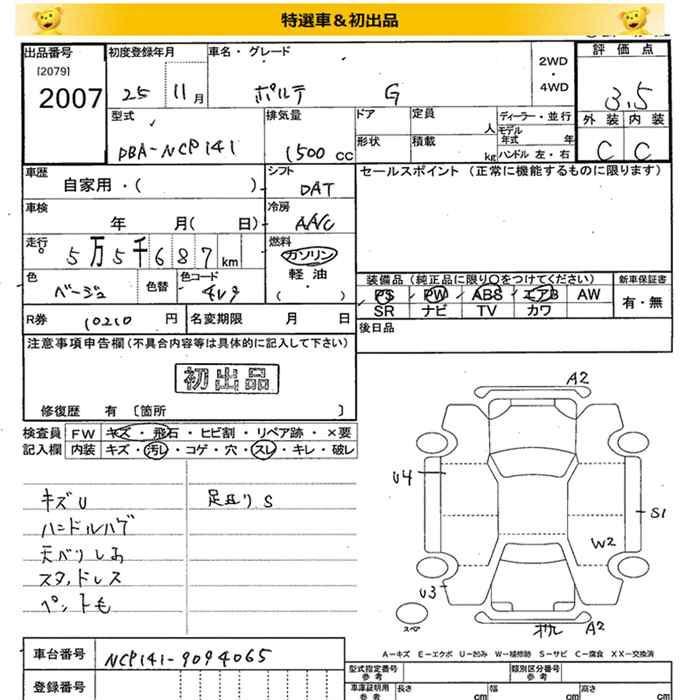 特選車＆初出品
出品番号
[2079]
2007
初度登録年月
25 11月
車名・グレード
ポルテ G
2WD
・
4WD
評価点
3.5
外装 内装
C C
型式
DBA-NCP141
排気量
1500 cc
ドア
定員
人
形状
積載
kg
ディーラー・並行
モデル年式 年
ハンドル 左・右
車歴
自家用・( )
シフト
DAT
セールスポイント (正常に機能するものに限ります)
車検
年 月( 日)
冷房
AAC
走行
5万5千687km
燃料
ガソリン
軽油
( )
色
ベージュ
色替
色コード
装備品 (純正品に限り○をつけてください)
新車保証書
PS PW ABS エアB AW
SR ナビ TV カワ
有・無
R券 10210 円
名変期限 月 日
後日品
注意事項申告欄(不具合内容等は具体的に記入して下さい)
初出品
修復歴 有 〔箇所 〕
検査員
記入欄
FW キズ・飛石・ヒビ割・リペア跡・×要
内装 キズ・汚レ・コゲ・穴・スレ・キレ・破レ
キズU
足廻りS
ハンドルハゲ
天ベリしお
スタッドレス
A2
U4
S1
W2
U3
A2
スペア
A－キズ E－エクボ U－凹み W－補修跡 S－サビ C－腐食 XX－交換済
車台番号
NCP141-9094065
登録番号
型式指定番号
参考
類別区分番号
参考
車庫証明用
参考
長さ cm
幅 cm
高さ cm